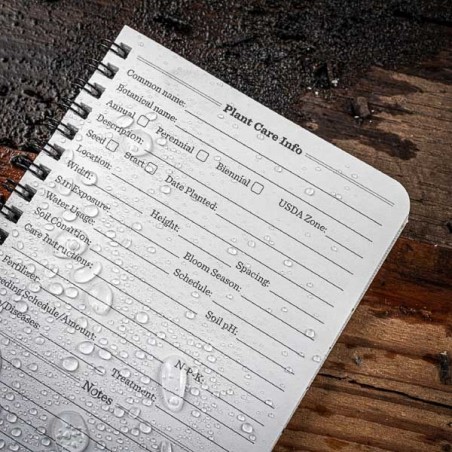 Plant Care Info
Common name:
Botanical name:
Annual Perennial Biennial
Description: USDA Zone:
Seed Start Date Planted:
Location:
Width: Height: Spacing:
Sun Exposure: Bloom Season:
Water Usage: Schedule:
Soil Condition: Soil pH:
Care Instructions:
Fertilizer: N-P-K:
eeding Schedule/Amount:
/Diseases: Treatment:
Notes